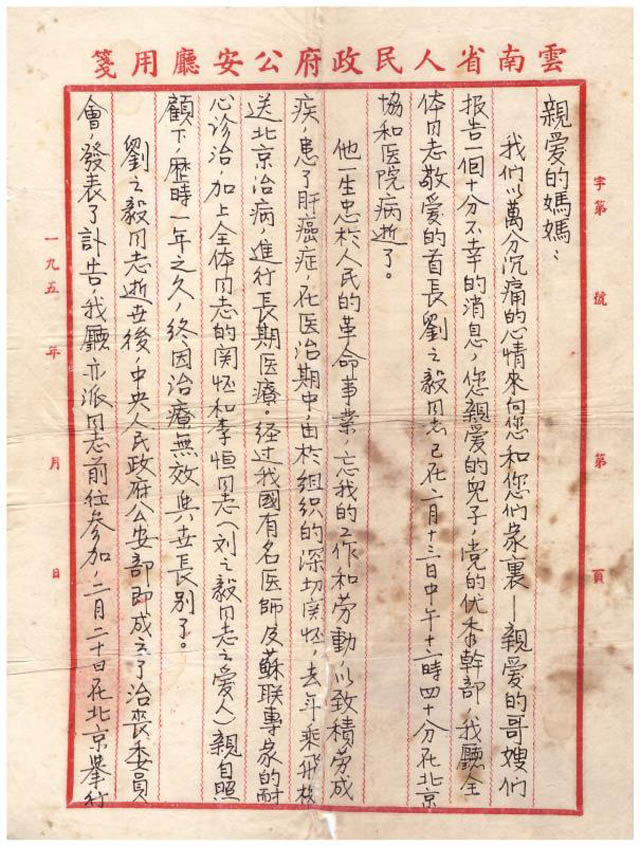 雲南省人民政府公安廳用箋
字第　號　第　頁
親爱的媽媽：
我们以萬分沉痛的心情來向您和您们家裏—親爱的哥嫂们
报告一個十分不幸的消息，您親爱的兒子，党的优秀幹部，我廳全
体同志敬爱的首長劉之毅同志已在二月十三日中午十二時四十分在北京
協和医院病逝了。
他一生忠於人民的革命事業，忘我的工作和劳動，以致積劳成
疾，患了肝癌症，在医治期中由於組织的深切関怀，去年乘飛机
送北京治病，進行長期医療。经过我國有名医師及蘇联專家的耐
心诊治，加上全体同志的関怀和李恒同志（刘之毅同志之爱人）親自照
顧下，歷時一年之久，终因治療無效與世長别了。
劉之毅同志逝世後，中央人民政府公安部即成立了治喪委員
會，發表了訃告，我廳亦派同志前往参加，二月二十日在北京舉行
一九五　年　月　日